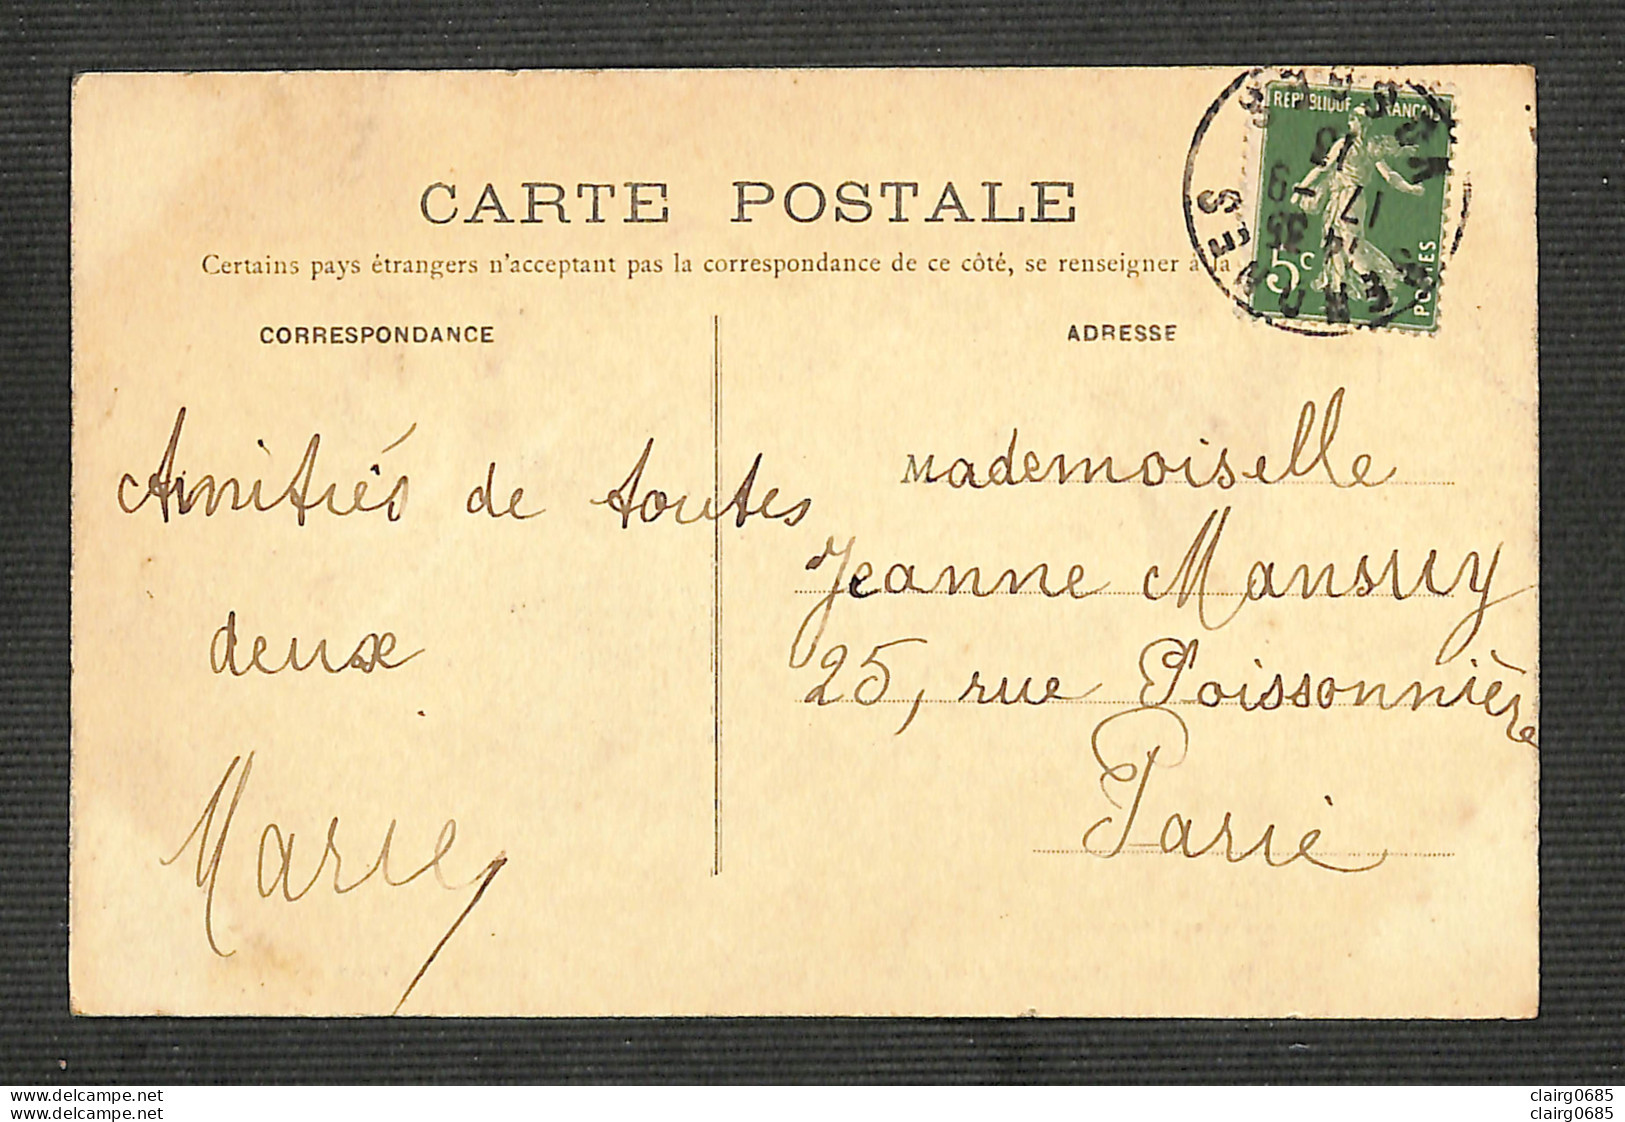 CARTE POSTALE
Certains pays étrangers n'acceptant pas la correspondance de ce côté, se renseigner à la
CORRESPONDANCE
ADRESSE
REPUBLIQUE FRANCAI
5c
POSTES
14 35
17 -9
13
Amitiés de toutes
deux
Marie
Mademoiselle
Jeanne Mansuy
25, rue Poissonnière
Paris
www.delcampe.net
www.delcampe.net
clairg0685
clairg0685